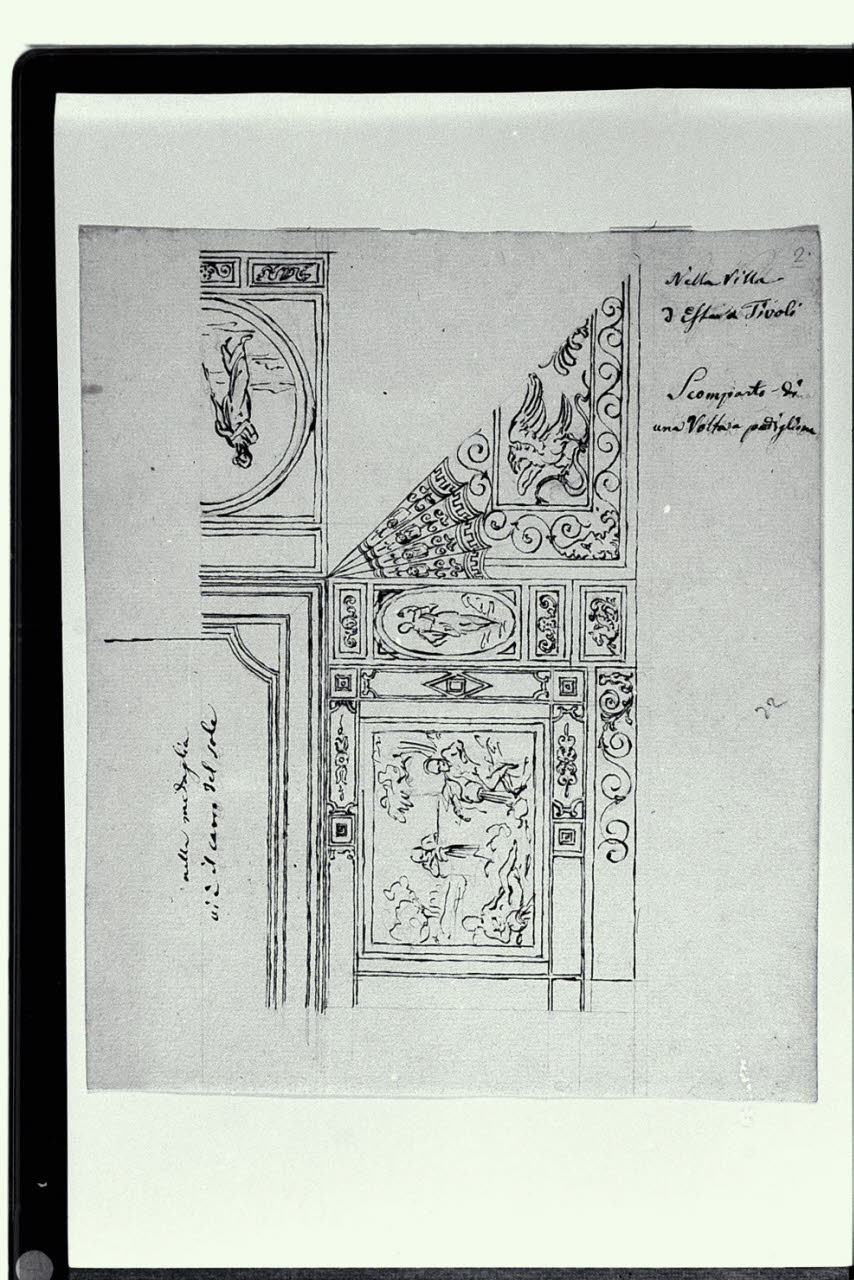 2.
Nella Villa
d'Este a Tivoli
Scomparto di
una Volta a padiglione
22
nella medaglia
vi è il carro del sole